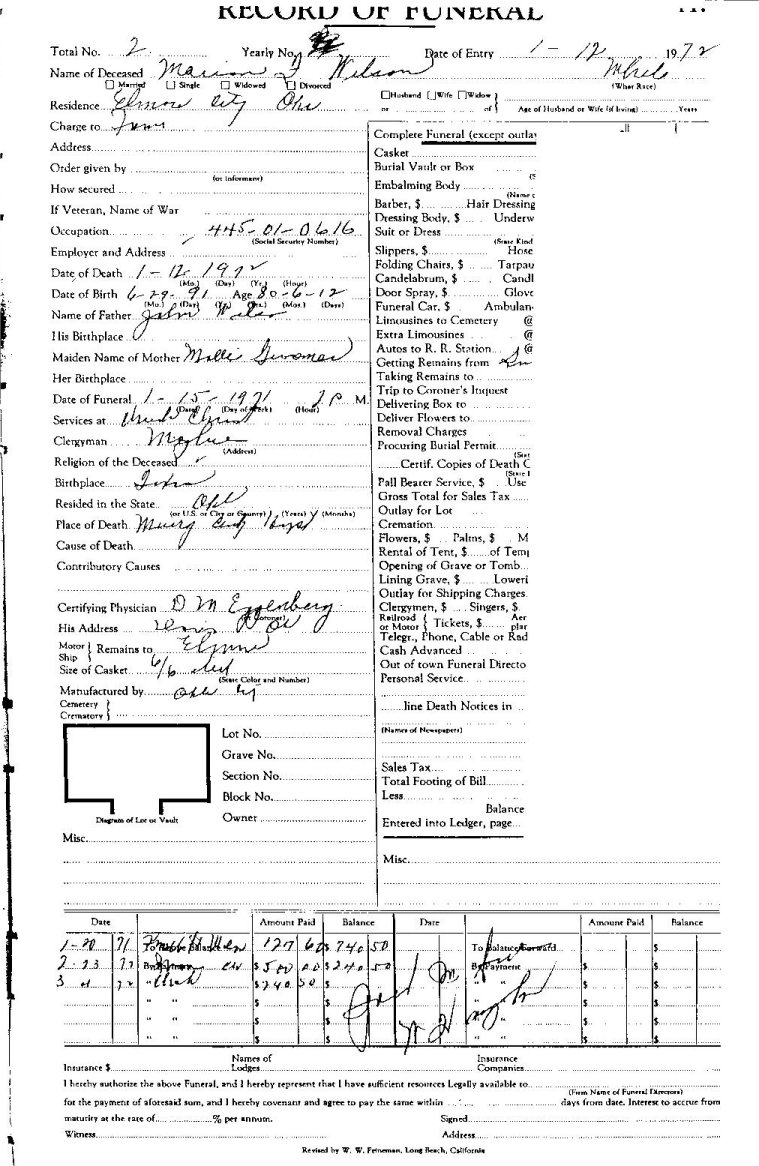 RECORD OF FUNERAL
Total No. 2 Yearly No. Date of Entry 1 - 12 1972
Name of Deceased Marion Wilson White
Married Single Widowed Divorced (What Race)
Husband Wife Widow
Residence Elmore City Okla or of Age of Husband or Wife (if living) Years
Charge to
Address
Order given by
(or Informant)
How secured
If Veteran, Name of War
Occupation 445-01-0616
(Social Security Number)
Employer and Address
Date of Death 1-12 1972
(Mo.) (Day) (Yr.) (Hour)
Date of Birth 6-29-91 Age 80-6-12
(Mo.) (Day) (Yr.) (Yrs.) (Mos.) (Days)
Name of Father John Wilson
His Birthplace
Maiden Name of Mother Mollie
Her Birthplace
Date of Funeral 1-15-1971 2 P M.
(Date) (Day of Week) (Hour)
Services at Church Christ
Clergyman
(Address)
Religion of the Deceased
Birthplace
Resided in the State
(or U.S. or City or County) (Years) (Months)
Place of Death
Cause of Death
Contributory Causes
Certifying Physician D M
(or Coroner)
His Address
Motor Ship } Remains to Elmore
Size of Casket 6/6
(State Color and Number)
Manufactured by
Cemetery
Crematory
Lot No.
Grave No.
Section No.
Block No.
Owner
Diagram of Lot or Vault
Misc.
Complete Funeral (except outlay
Casket
Burial Vault or Box
(S
Embalming Body
(Name o
Barber, $ Hair Dressing
Dressing Body, $ Underw
Suit or Dress
(State Kind
Slippers, $ Hose
Folding Chairs, $ Tarpau
Candelabrum, $ Candl
Door Spray, $ Glove
Funeral Car, $ Ambulan
Limousines to Cemetery @
Extra Limousines @
Autos to R. R. Station @
Getting Remains from
Taking Remains to
Trip to Coroner's Inquest
Delivering Box to
Deliver Flowers to
Removal Charges
Procuring Burial Permit
(Stat
Certif. Copies of Death C
(State I
Pall Bearer Service, $ Use
Gross Total for Sales Tax
Outlay for Lot
Cremation
Flowers, $ Palms, $ M
Rental of Tent, $ of Temp
Opening of Grave or Tomb
Lining Grave, $ Loweri
Outlay for Shipping Charges
Clergymen, $ Singers, $
Railroad or Motor { Tickets, $ Aer plar
Telegr., Phone, Cable or Rad
Cash Advanced
Out of town Funeral Directo
Personal Service
line Death Notices in
(Names of Newspapers)
Sales Tax
Total Footing of Bill
Less
Balance
Entered into Ledger, page
Misc.
Date Amount Paid Balance Date Amount Paid Balance
1-20 71 740 50 To Balance Forward $ $
2-23 72 By Payment $500 00 $240 50 By Payment $ $
3 72 " $240 50 $ " " $ $
" " $ $ $ $
" " $ $ " " $ $
" " $ $ " " $ $
Insurance $ Names of Lodges Insurance Companies
I hereby authorize the above Funeral, and I hereby represent that I have sufficient resources Legally available to
(Firm Name of Funeral Directors)
for the payment of aforesaid sum, and I hereby covenant and agree to pay the same within days from date. Interest to accrue from
maturity at the rate of % per annum. Signed
Witness Address
Revised by W. W. Feineman, Long Beach, California